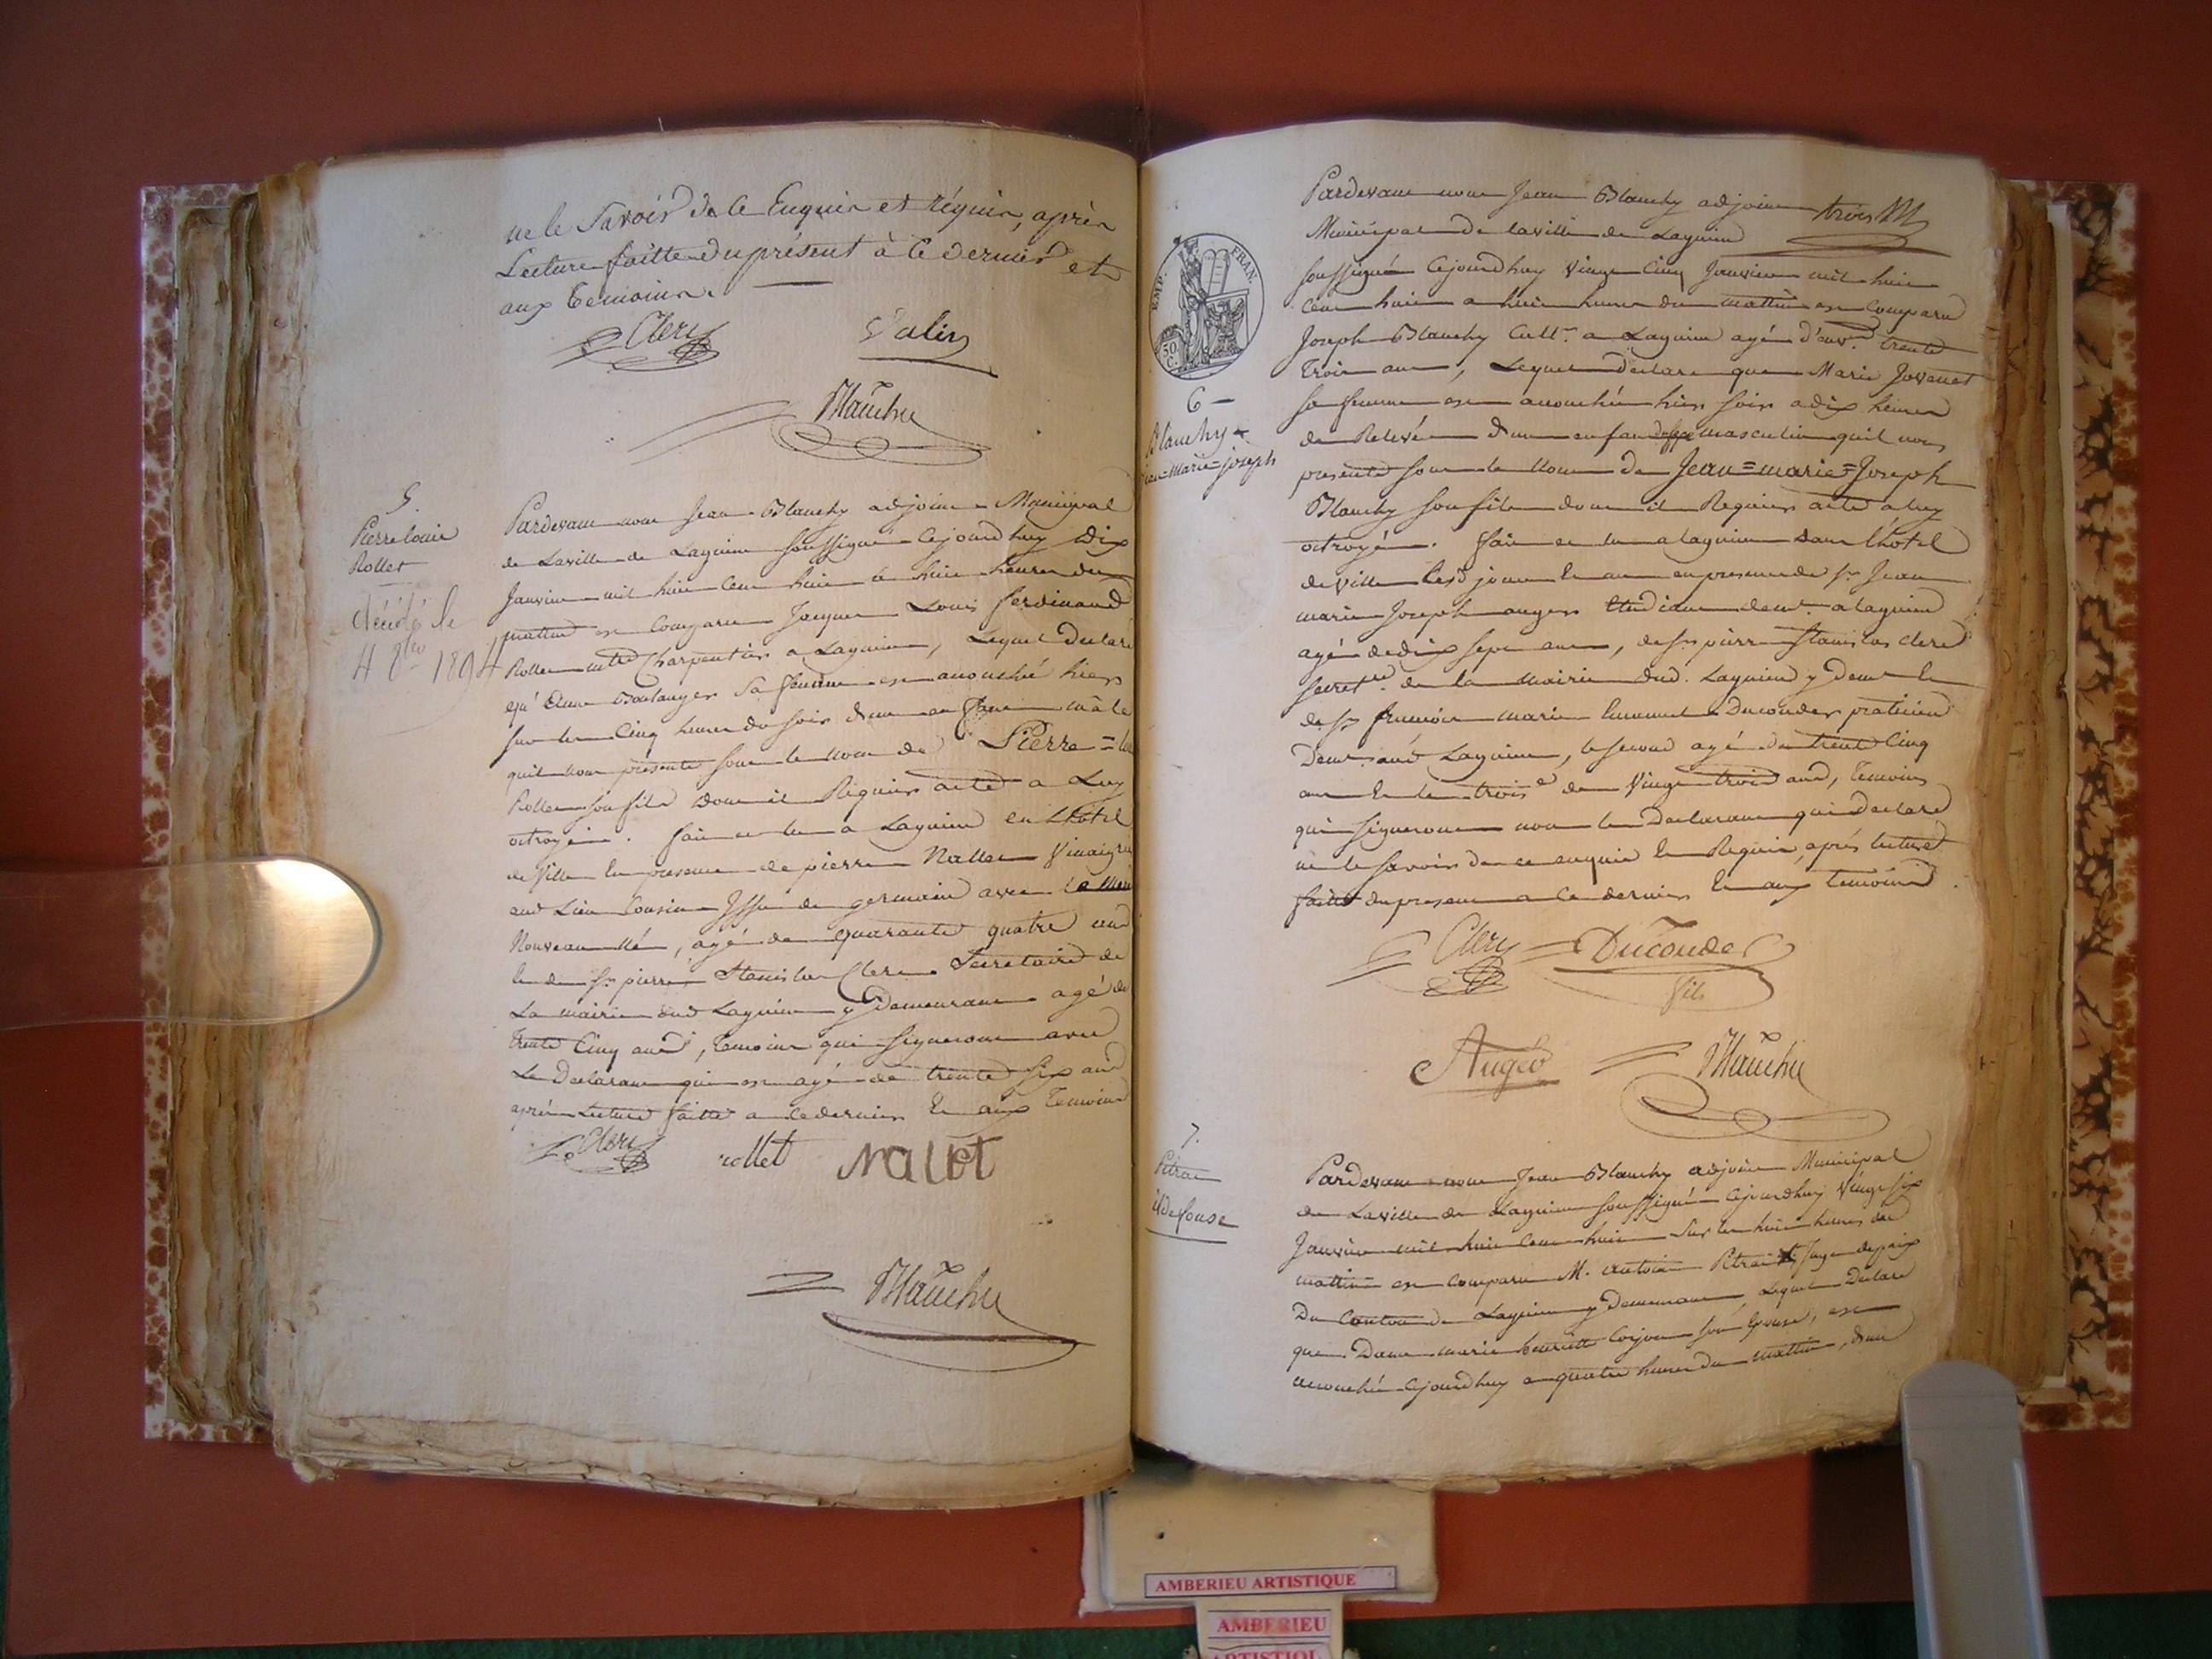 ne le savoir de ce Enquin et réquin, après
Lecture faitte du présent à ce dernier et
aux temoins.
Clerc Valin
Blanchy
5.
Pierre louis
Rollet
décédé le
4 8bre 1894
Pardevant nous Jean Blanchy adjoint Municipal
de La ville de Lagnieu soussigné Cejourd huy dix
Janvier mil huit Cent huit à huit heures du
mattin est Comparu Jacques Louis ferdinand
Rollet Charpentier a Lagnieu, Lequel Declare
qu' Boulanger sa femme est accouché hier
sur les Cinq heures du soir d'un enfant mâle
quil nous presente sous le nom de Pierre=
Rollet son fils dont il Requier acte a Luy
octroyé. fait et lu a Lagnieu en L'hôtel
de Ville En presence de pierre Nallet
Cousin Issu de germain avec le
Nouveau né, agé de quarante quatre ans
Et de Sr pierre Stanislas Clerc Secretaire de
La mairie dud Lagnieu y Demeurant agé de
trente Cinq ans, Temoins qui signeront avec
Le Declarant qui est agé de trente six ans
après Lecture faitte a ce dernier Et aux Temoins
Clerc rollet Nalet
Blanchy
trois
Pardevant nous Jean Blanchy adjoint
Municipal de la ville de Lagnieu
soussigné Cejourdhuy Vingt Cinq Janvier mil huit
Cent huit a huit heures du mattin est Comparu
Joseph Blanchy Cultr. a Lagnieu agé d'envn. trente
Trois ans, Lequel declare que Marie Jovenet
sa femme est accouchée hier soir a dix heures
de Relevée d'un enfant masculin quil nous
presente sous le nom de Jean=marie=Joseph
Blanchy son fils dont il Requier acte a luy
octroyé. fait et lu a lagnieu dans l'hôtel
de ville lesd jour Et an en presence de Sr Jean
marie Joseph auger Etudiant demt. a lagnieu
agé de dix sept ans, de Sr pierre Stanislas clerc
secretre. de la mairie dud. Lagnieu y demt Et
de Sr françois marie Emanuel Ducouder praticien
Demt. aud Lagnieu, le second agé de trente Cinq
ans Et le troise de Vingt trois ans, Temoins
qui signeront non le Declarant qui declare
ne le savoir de ce enquis Et Requis, après lecture
faitte du present a ce dernier Et aux temoins.
EMP. FRAN.
50. C.
6
Blanchy
jean=marie=joseph
Clerc Ducouder
fils
Auger Blanchy
7.
Petrac
ildefonse
Pardevant nous Jean Blanchy adjoint Municipal
de La ville de Lagnieu soussigné Cejourdhuy Vingt six
Janvier mil huit Cent huit sur les huit heures du
mattin est Comparu M. antoine Juge de paix
Du Canton de Lagnieu y Demeurant, Lequel Declare
que Dame marie henriette son Epouse, est
accouchée Cejourdhuy a quatre heures du mattin, d'un
AMBERIEU ARTISTIQUE
AMBERIEU
ARTISTIQUE